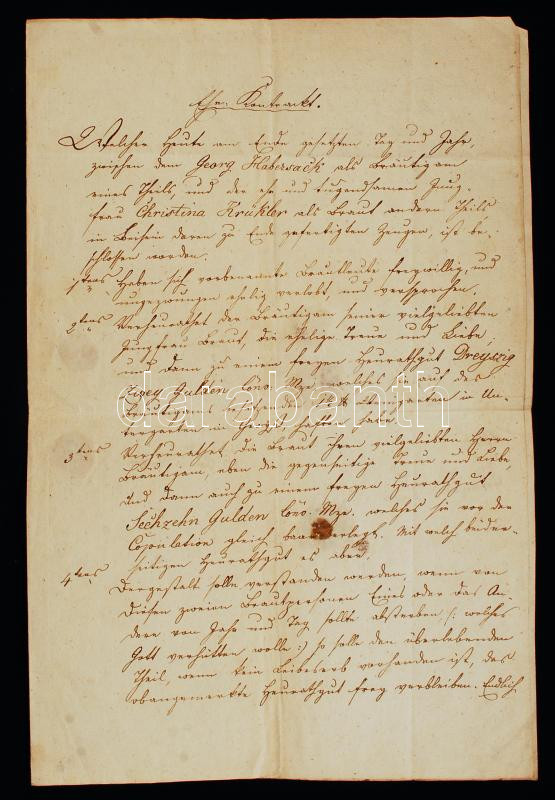 Ehe Kontrackt.
Welcher Heute am Ende gesetzten Tag und Jahr,
zwischen dem Georg Habersack als Bräutigam
eines Theils, und der ehr und tugendsamen Jung-
frau Christina Krükler als Braut andern Theils
in Beisein deren zu Ende gefertigten Zeugen, ist be-
schlossen worden.
1tens Haben sich vorbenannte Brautleute freywillig, und
ungezwungen ehelig verlobt, und versprochen,
2tens Verheurathet der Bräutigam seiner vielgeliebten
Jungfrau Braut, die ehelige Treue und Liebe,
und dann zu einem freyen Heurathgut Dreyszig
Zwey Gulden Conv. Mze. welches sie auf des
Bräutigams besitzenden Weingarten in Un-
tergarten haben.
3tens Verheurathet die Braut ihren vielgeliebten Herrn
Bräutigam, eben die gegenseitige Treue und Liebe,
und dann auch zu einem freyen Heurathgut
Sechzehn Gulden Conv. Mze. welches sie vor der
Copulation gleich baar erlegt. Mit welch beider-
seitigen Heurathgut es aber,
4tens Dergestalt solle verstanden werden, wenn von
diesen zweien Brautpersonen Eines oder das An-
dere von Jahr und Tag sollte absterben /: welches
Gott verhütten wolle :/ so solle den überlebenden
Theil, wenn kein Leibeserb vorhanden ist, das
obangemerkte Heurathgut frey verbleiben. Endlich
darabanth